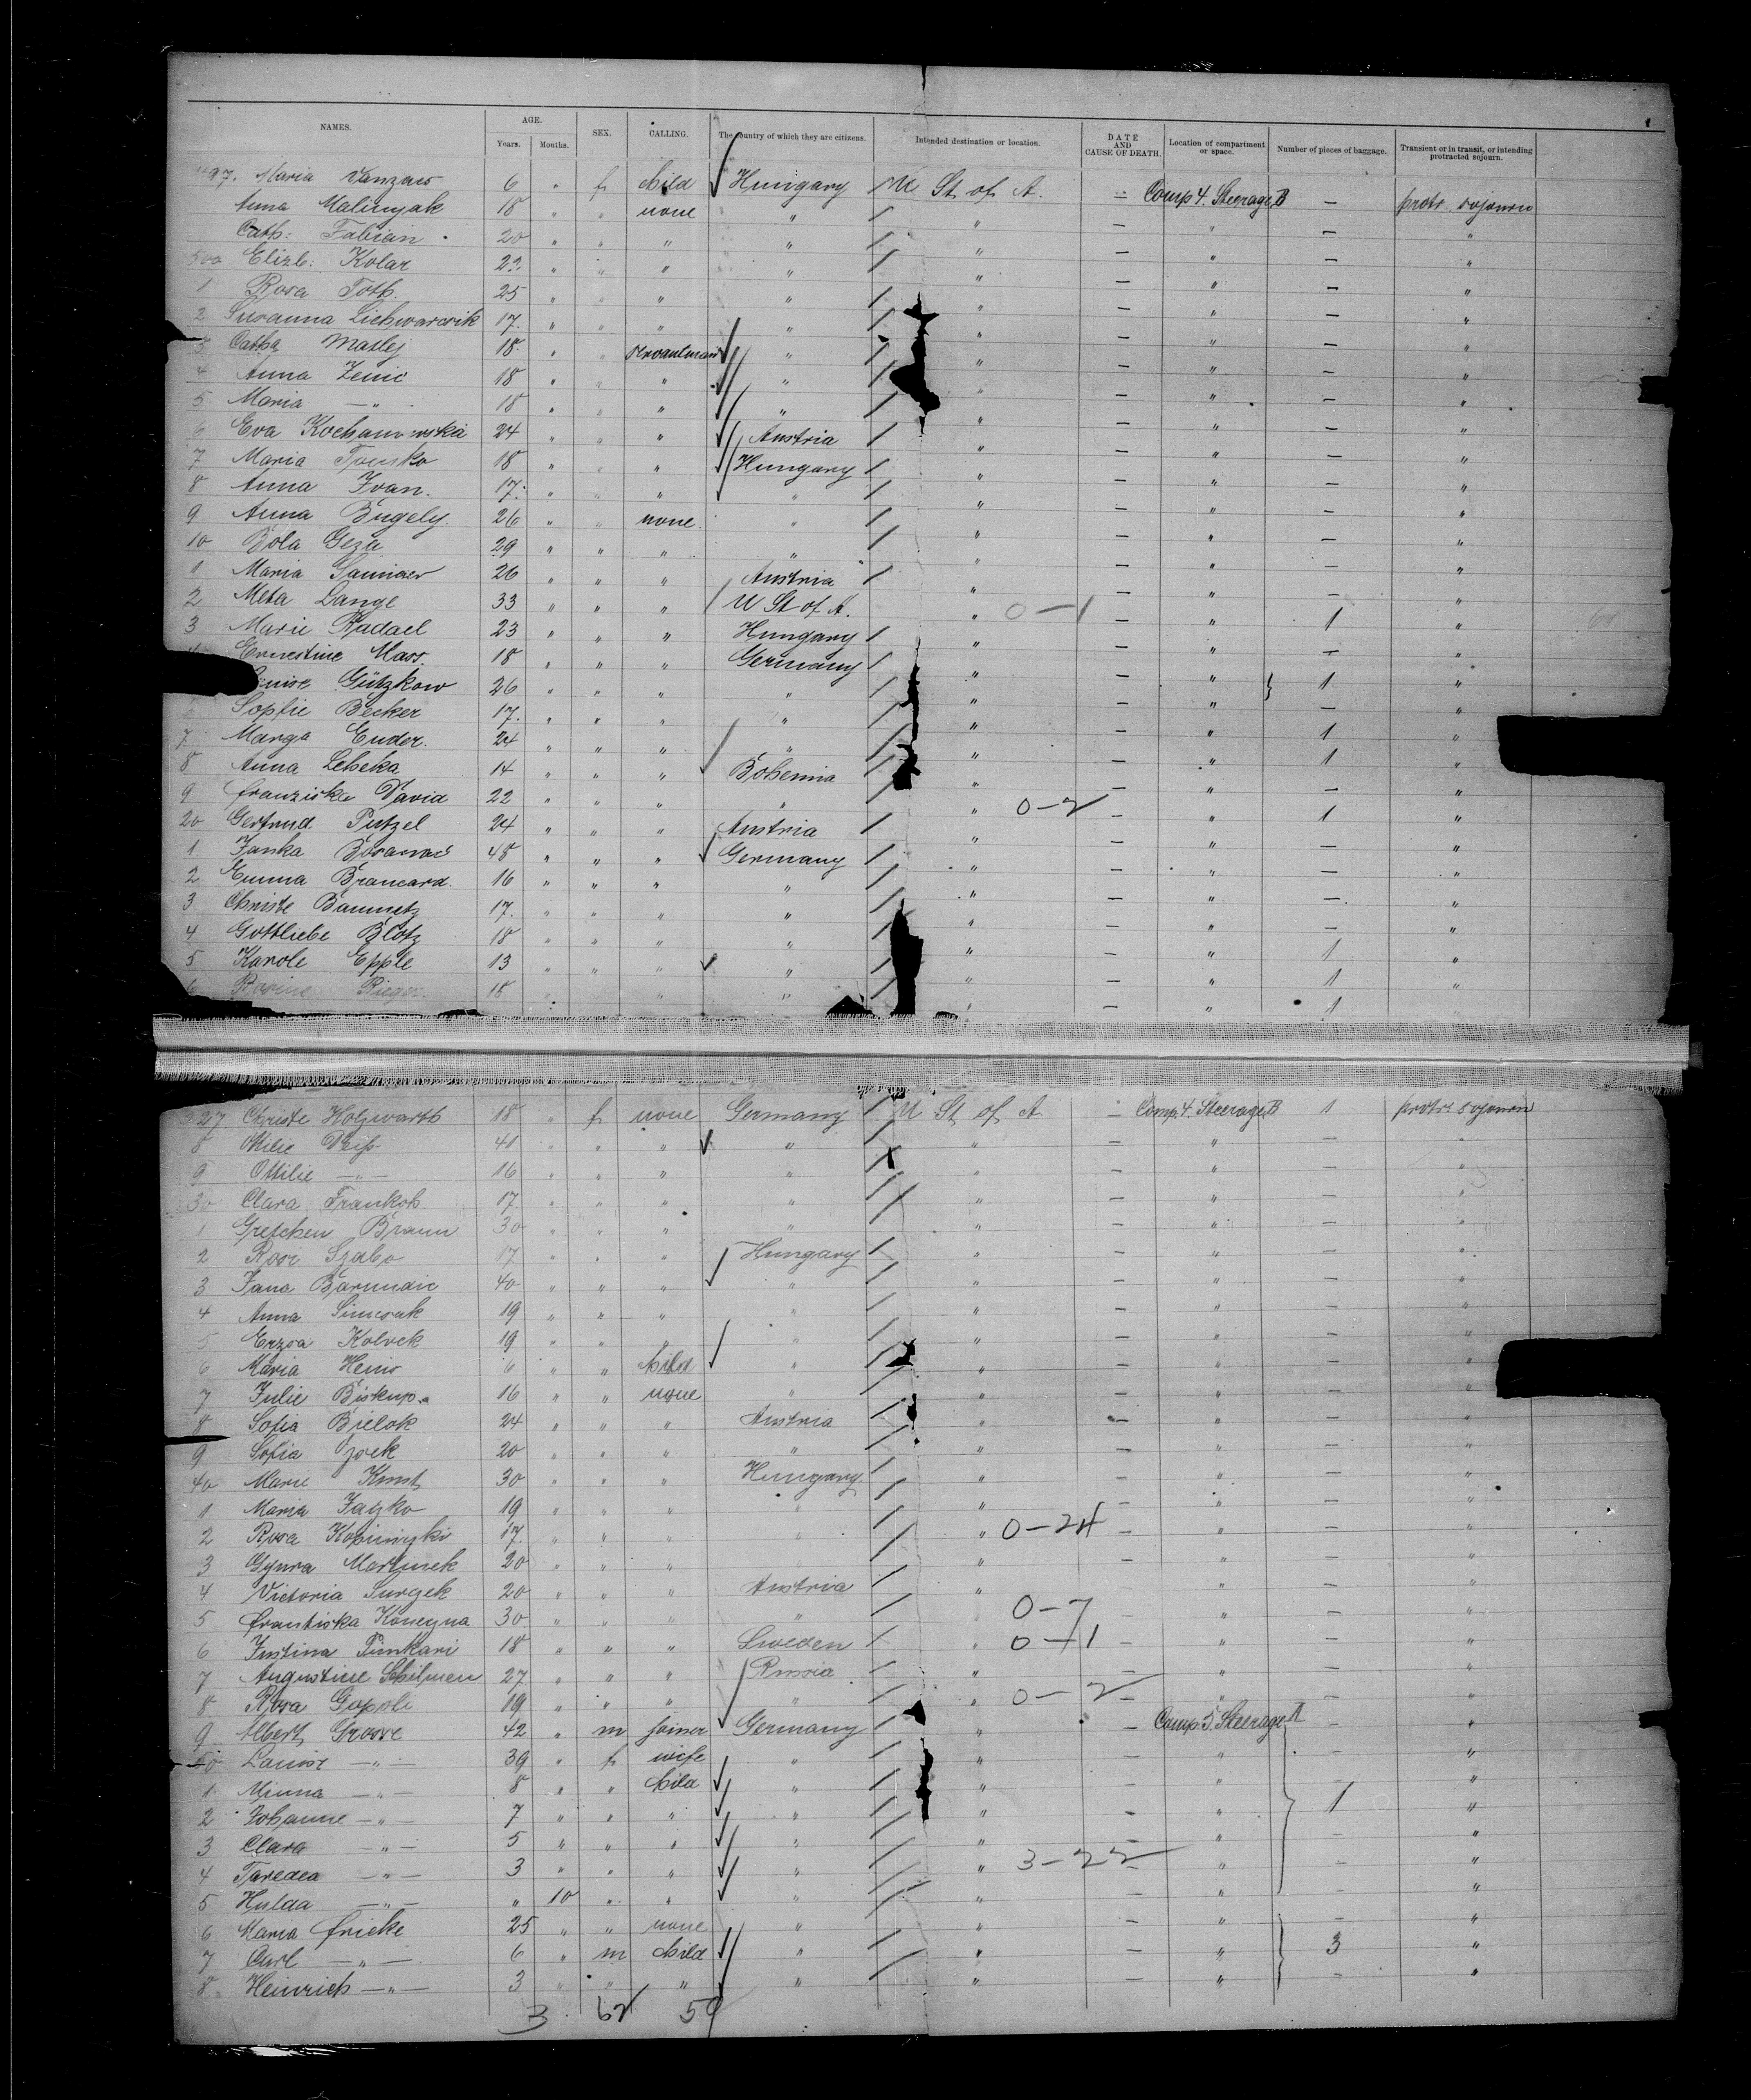 NAMES. AGE. Years. Months. SEX. CALLING. The country of which they are citizens. Intended destination or location. DATE AND CAUSE OF DEATH. Location of compartment or space. Number of pieces of baggage. Transient or in transit, or intending protracted sojourn.
497. Maria 6 " f child Hungary U St of A. — Comp 4. Steerage B — protr. sojourn
Anna Malinyak 18 " " none " " — " — "
Cath: Fabian 20 " " " " " — " — "
500 Elizb: Kolar 22 " " " " " — " — "
1 Rosa Toth 25 " " " " " — " — "
2 Susanna 17 " " " " " — " — "
3 Cath. Maslej 18 " " servantmaid " " — " — "
4 Anna Zenic 18 " " " " " — " — "
5 Maria — " — 18 " " " " " — " — "
6 Eva Kochanowska 24 " " " Austria " — " — "
7 Maria 18 " " " Hungary " — " — "
8 Anna Ivan. 17 " " " " " — " — "
9 Anna Bugely 26 " " none " " — " — "
10 Bola Geza 29 " " " " " — " — "
1 Maria 26 " " " Austria " — " — "
2 Meta Lange 33 " " " U St of A. " 0—1 — " 1 "
3 Marie Radael 23 " " " Hungary " — " — "
Ernestine Mass. 18 " " " Germany " — " 1 "
Gützkow 26 " " " " " — " — "
Sophie Becker 17. " " " " " — " 1 "
7 Marga Euder. 24 " " " " " — " 1 "
8 Anna Lebeka 14 " " " Bohemia " — " — "
9 Franziska David 22 " " " " " 0—2 — " 1 "
20 Gertrud Putzel 24 " " " Austria " — " — "
1 Janka 48 " " " Germany " — " — "
2 Emma Brancard. 16 " " " " " — " — "
3 Christe Baumetz 17. " " " " " — " — "
4 Gottliebe Blotz 18 " " " " " — " 1 "
5 Karole Epple 13 " " " " " — " 1 "
6 Rosine Rieger. 18 " " " " " — " 1 "
527 Christe Holzwarth 18 " f none Germany U St of A — Comp. 4. Steerage B 1 protr. sojourn
8 Ottilie Weiß 41 " " " " " — " — "
9 Ottilie — " — 16 " " " " " — " — "
30 Clara 17. " " " " " — " — "
1 Gretchen Braun 30 " " " " " — " — "
2 Rosi Szabo 17 " " " Hungary " — " — "
3 Jana 40 " " " " " — " — "
4 Anna Simcsak 19 " " " " " — " — "
5 Erzsa Kolvek 19 " " " " " — " — "
6 Maria 6 " " child " " — " — "
7 Julie Biskup. 16 " " none " " — " — "
8 Sofia Bielok 24 " " " Austria " — " — "
9 Sofia 20 " " " " " — " — "
40 Marie 30 " " " Hungary " — " — "
1 Maria Jaszko 19 " " " " " — " — "
2 Rosa 17. " " " " " 0—24 — " — "
3 Martinek 20 " " " " " — " — "
4 Victoria 20 " " " Austria " — " — "
5 Frantiska Konecyna 30 " " " " " 0—7 " — "
6 Justina 18 " " " Sweden " 0—1 — " — "
7 Augustine 27 " " " Russia " — " — "
8 Rosa 19 " " " " " 0—2 — " — "
9 Albert Grosse 42 " m joiner Germany " — Comp. 5. Steerage A — "
50 Louise — " — 39 " f wife " " — " — "
1 Minna — " — 8 " " child " " — " — "
2 Johanne — " — 7 " " " " " — " 1 "
3 Clara — " — 5 " " " " " — " — "
4 — " — 3 " " " " " 3—22 — " — "
5 Hulda — " — " 10 " " " " — " — "
6 Maria Fricke 25 " " none " " — " — "
7 Carl — " — 6 " m child " " — " 3 "
8 Heinrich — " — 3 " " " " " — " — "
3 62 59